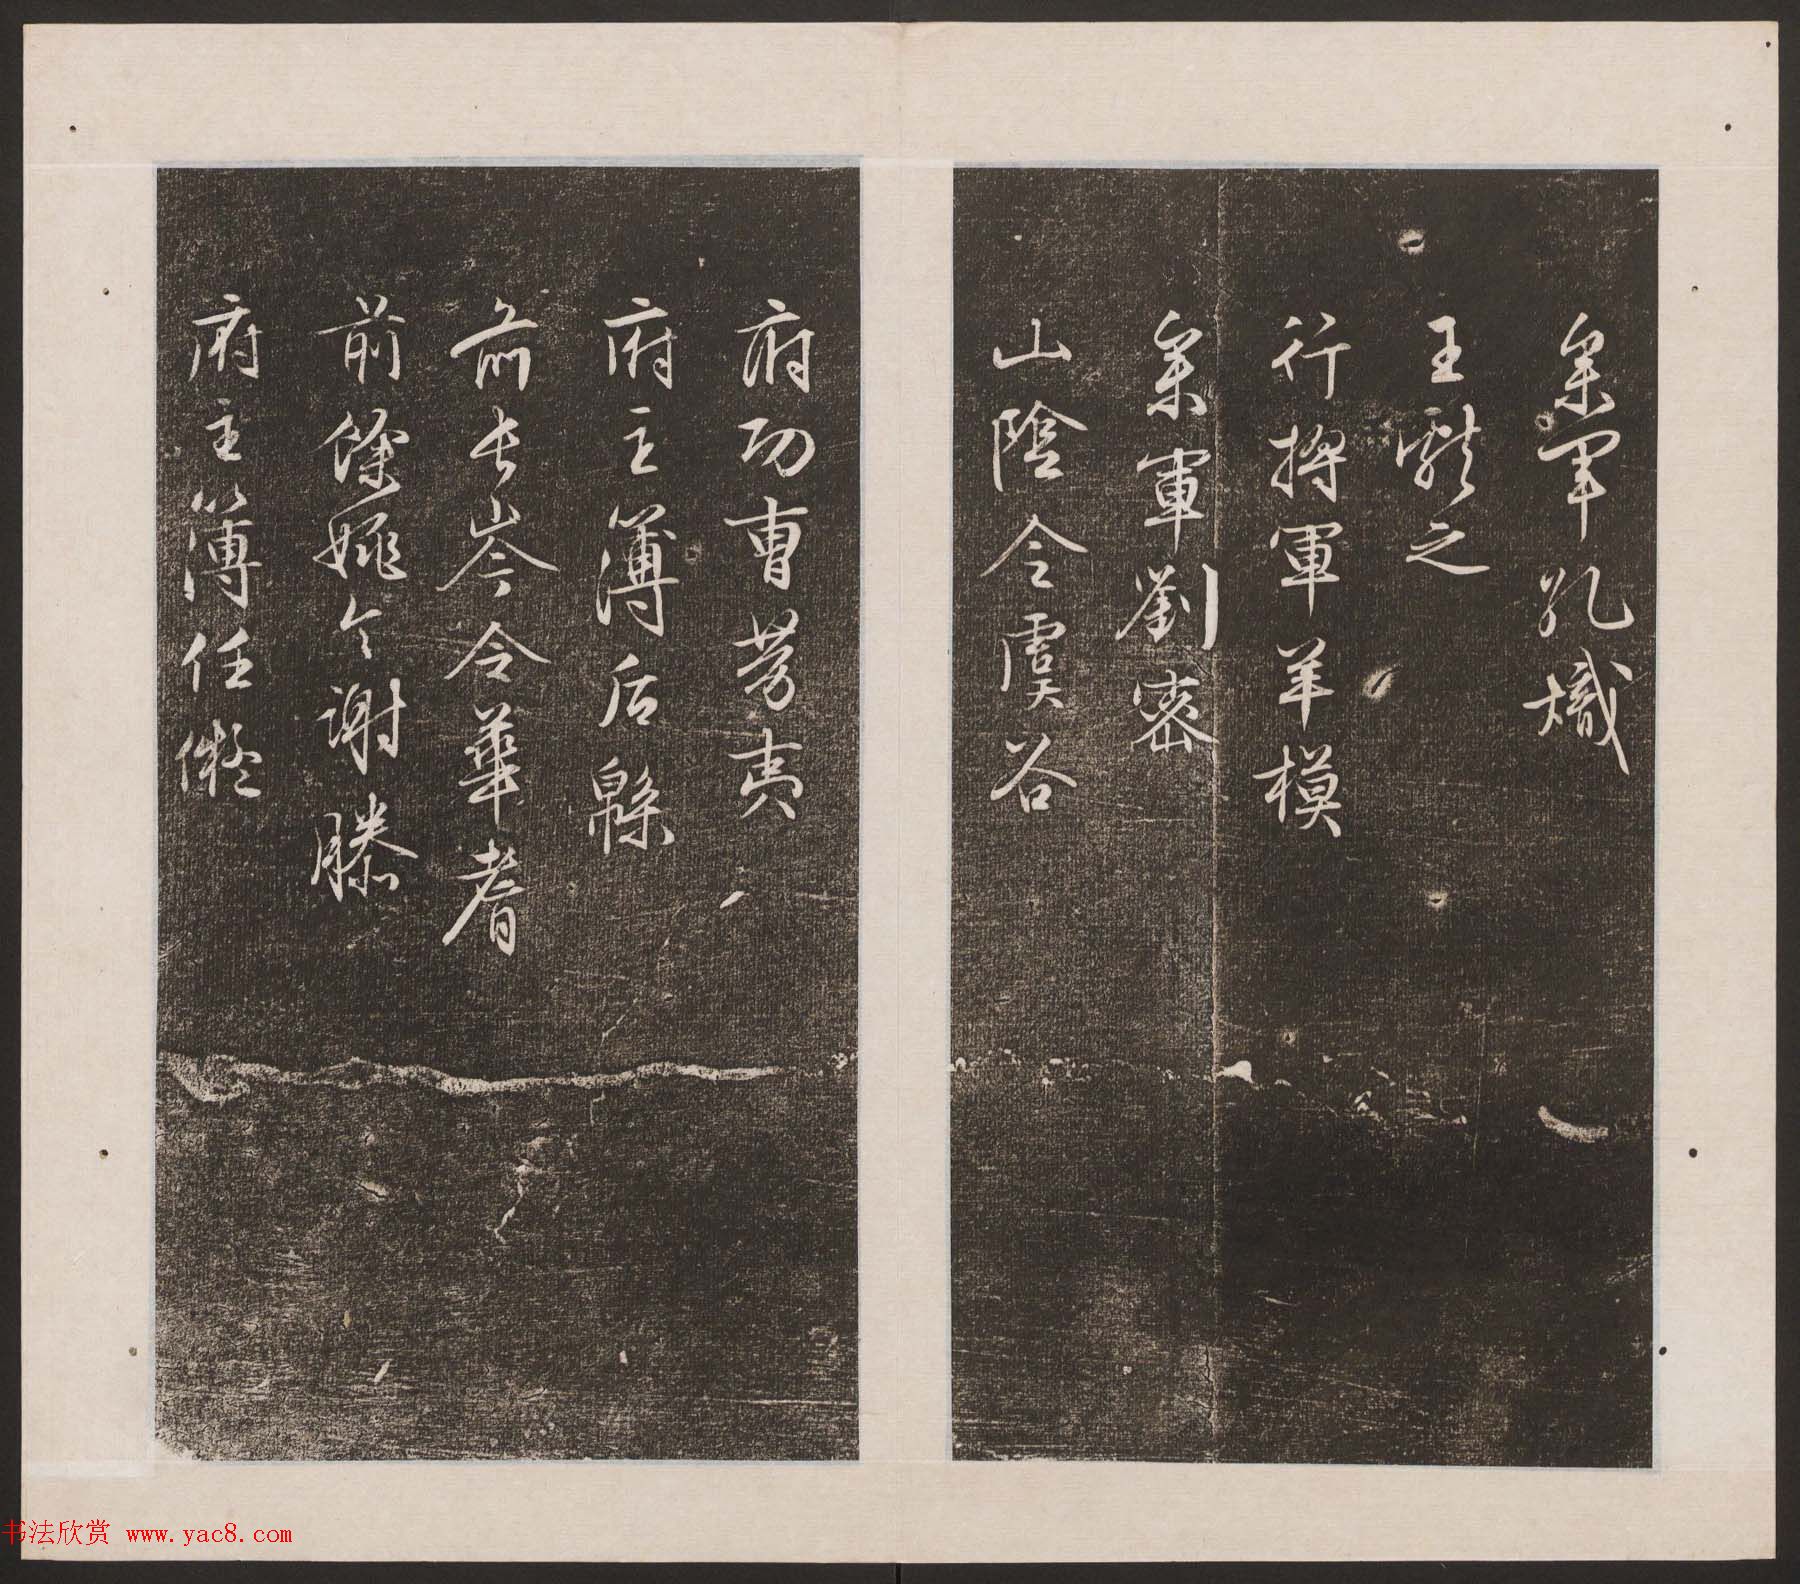 叅軍孔熾
王獻之
行將軍羊模
叅軍劉密
山陰令虞谷
府功曹勞夷
府主簿后緜
前長岑令華耆
前餘姚令謝滕
府主簿任儗
书法欣赏 www.yac8.com